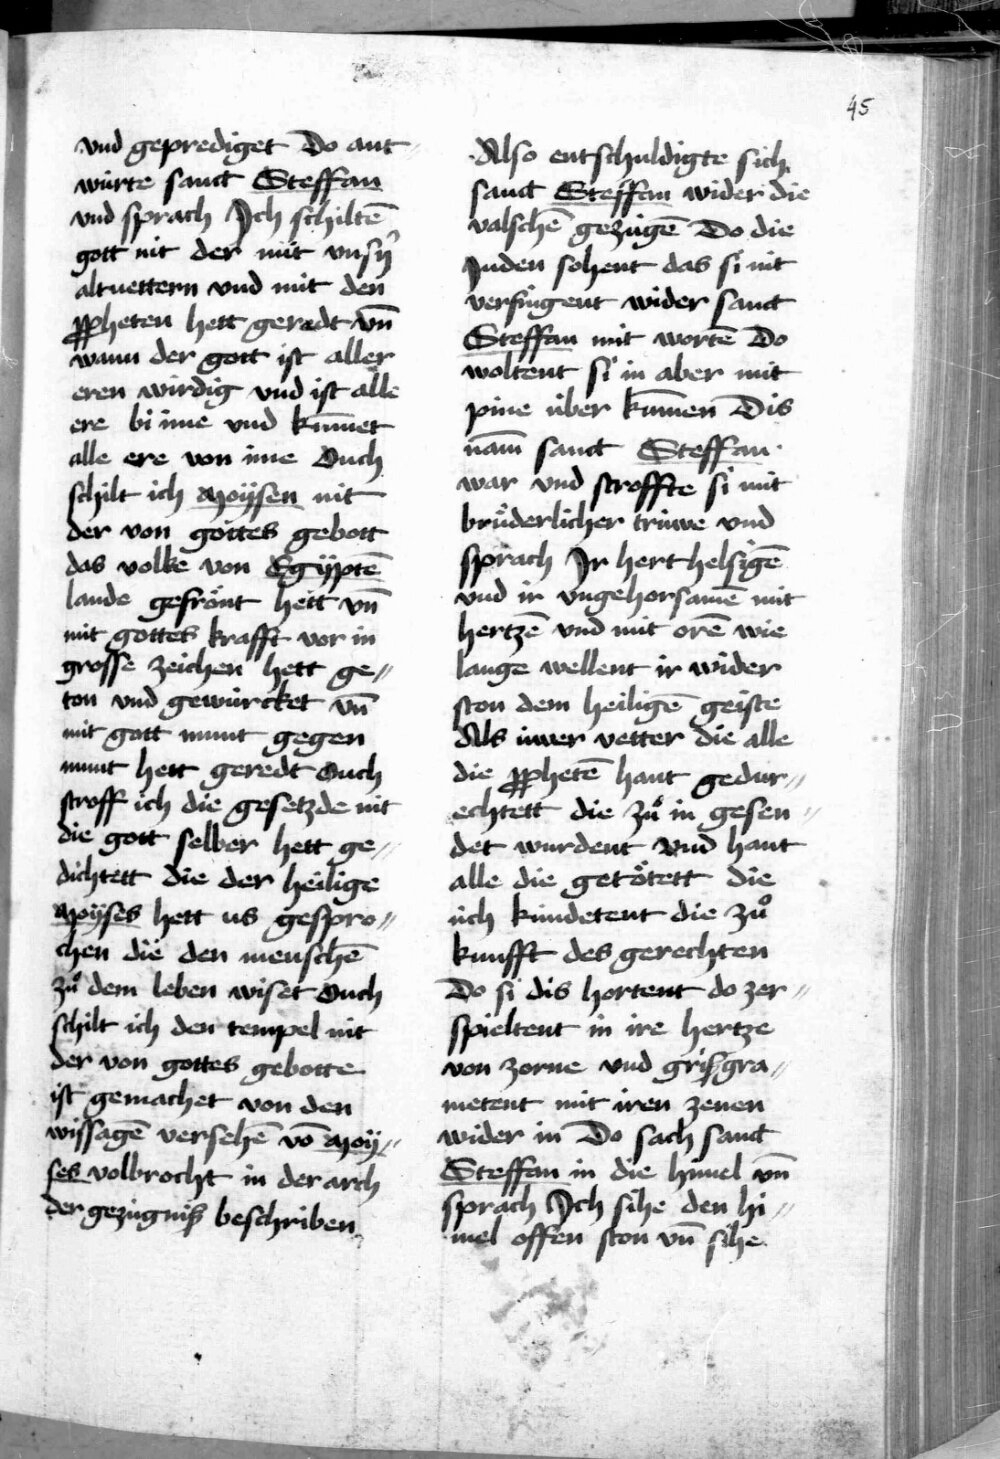 45
vnd geprediget Do ant
würte sanct Steffan
vnd sprach Ich schiltē
gott nit der mit vnsṅ
altvettern vnd mit den
ꝓpheten hett geredt vn̄
wann der gott ist aller
eren wirdig vnd ist alle
ere bi ime vnd kūmet
alle ere von ime Ouch
schilt ich moÿsen nit
der von gottes gebott
das volke von Egÿptē
lande gefrönt hett vn̄
mit gottes krafft vor in
grosse zeichen hett ge〃
ton vnd gewürcket vn̄
mit gott munt gegen
munt hett geredt Ouch
stroff ich die gesetzde nit
die gott selber hett ge〃
dichtett die der heilige
moÿses hett us gespro〃
chen die den menschē
zuͦ dem leben wiset Ouch
schilt ich den tempel nit
der von gottes gebotte
ist gemachet von den
wissagē versehē vō moÿ〃
ses volbrocht in der arch
der gezügniß beschriben
Also entschuldigte sich
sanct Steffan wider die
valschē gezügē Do die
Juden sohent das si nit
verfingent wider sanct
Steffan mit wortē Do
woltent si in aber mit
pine über kūmen Dis
nam sanct Steffan
war vnd stroffte si mit
brüderlicher trüwe vnd
sprach Ir hert helsigē
vnd ir vngehorsamē mit
hertzē vnd mit orē wie
lange wellent ir wider
ston dem heiligē geiste
Als üwer vetter die alle
die ꝓphetē hant gedur〃
echtett die zuͦ in gesen〃
det wurdent vnd hant
alle die getötett die
üch kündetent die zuͦ
kunfft des gerechten
Do si dis hortent do zer〃
spieltent in ire hertze
von zorne vnd grißgra〃
metent mit iren zenen
wider in Do sach sanct
Steffan in die himel vn̄
sprach Ich sihe den hi〃
mel offen ston vn̄ sihe